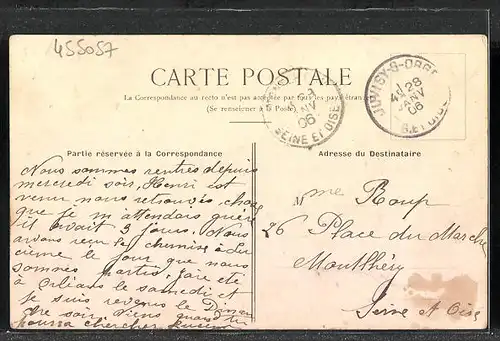 455057
CARTE POSTALE
La Correspondance au recto n'est pas acceptée par tous les pays étran
(Se renseigner à la Poste)
SEINE ET OISE
06
JUVISY-S-ORGE
28
JANV
06
S.ET OISE
Partie réservée à la Correspondance
Adresse du Destinataire
Nous sommes rentrés depuis
mercredi soir, Henri est
venu nous retrouver, chose
que je m'attendais guère
il avait 3 jours. Nous
avons reçu la chemise à Lu
cienne le jour que nous
sommes partis, j'ai été
à Orléans le samedi et
je suis revenu le Diman
che soir. Viens quand tu
pourra chercher
Mme Roup
26 Place du Marché
Montlhéry
Seine et Oise